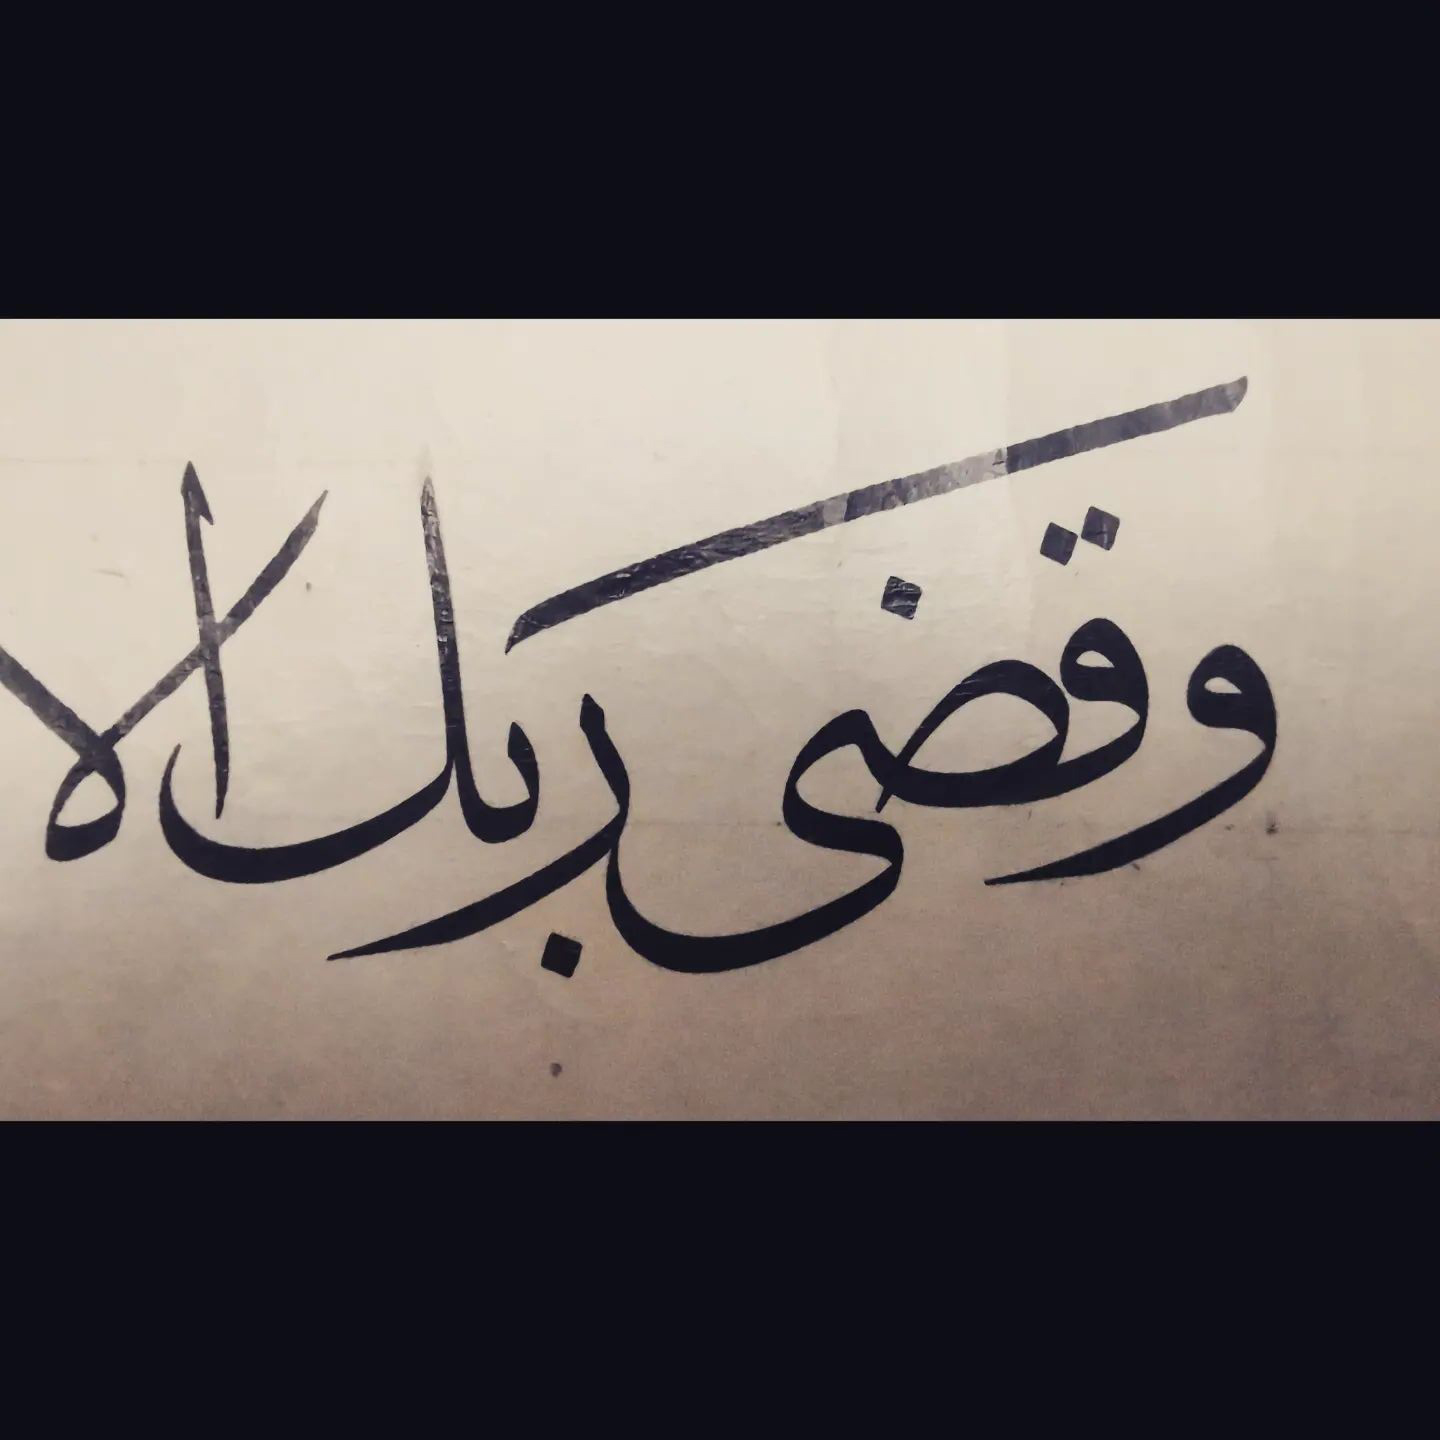 وقضى ربك الا